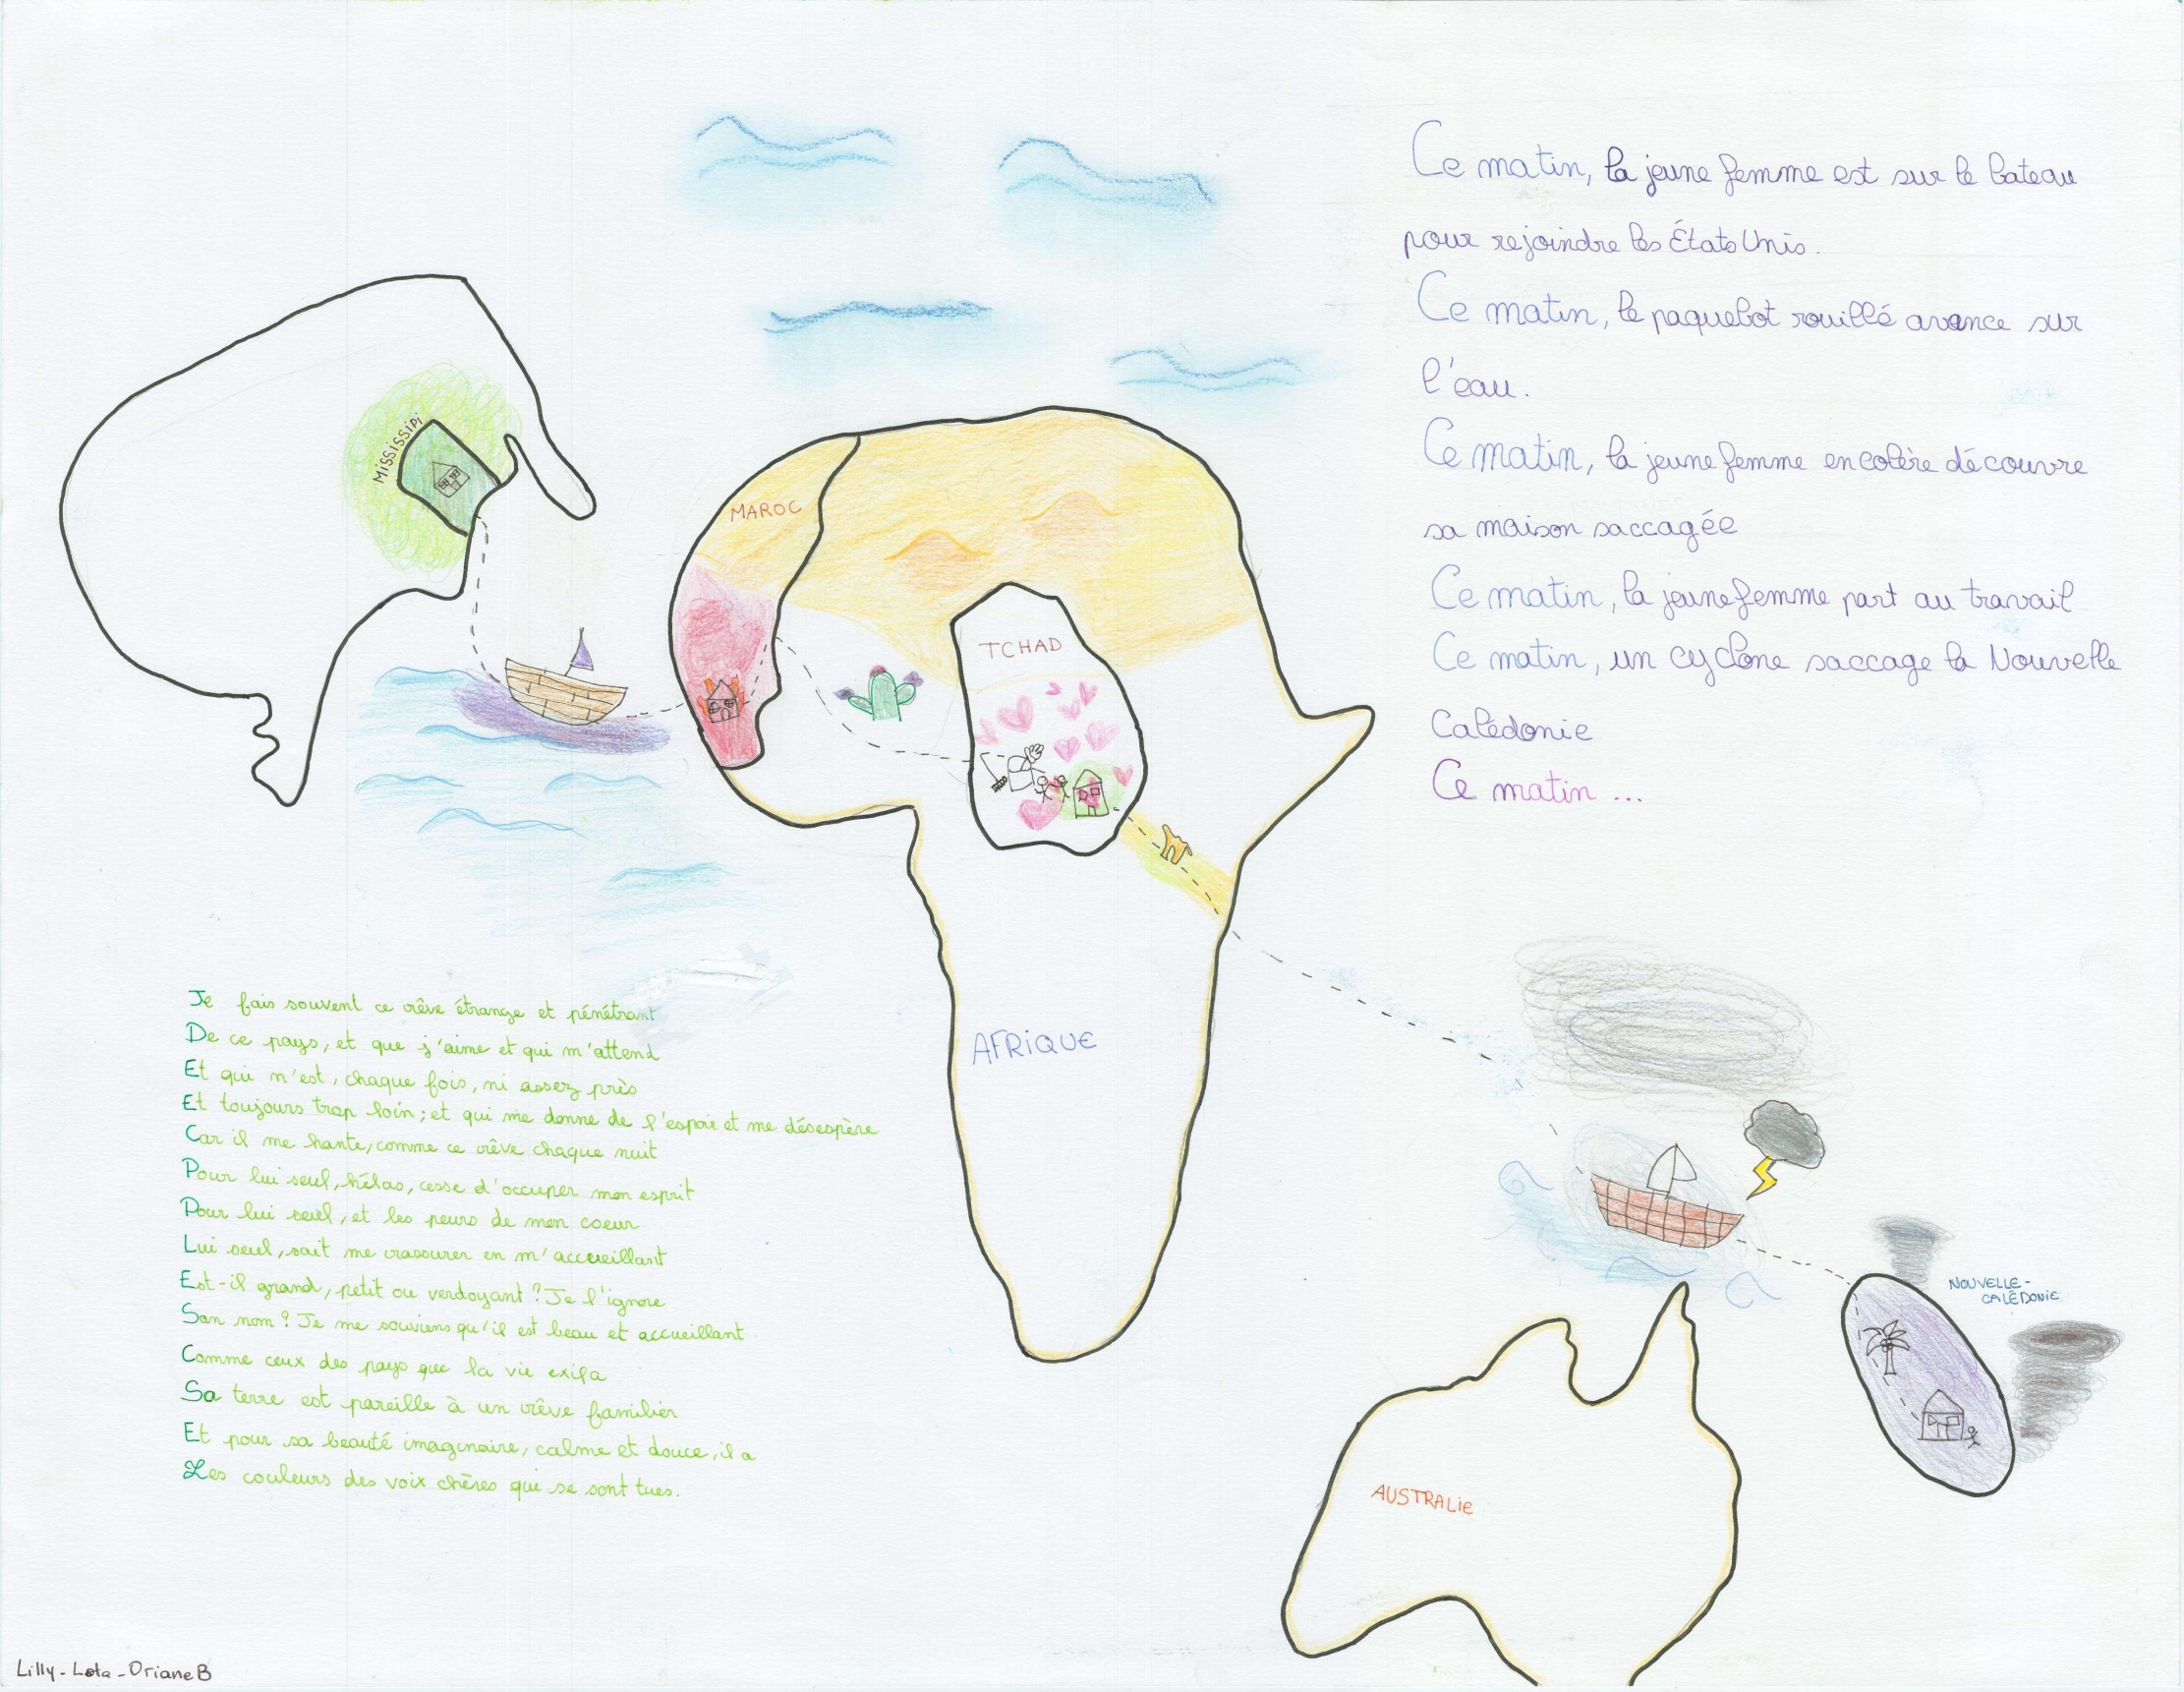 Ce matin, la jeune femme est sur le bateau
pour rejoindre les États Unis.
Ce matin, le paquebot rouillé avance sur
l'eau.
Ce matin, la jeune femme en colère découvre
sa maison saccagée
Ce matin, la jeune femme part au travail
Ce matin, un cyclone saccage la Nouvelle
Calédonie
Ce matin ...
MISSISSIPI
MAROC
TCHAD
AFRIQUE
NOUVELLE-
CALÉDONIE
AUSTRALIE
Je fais souvent ce rêve étrange et pénétrant
De ce pays, et que j'aime et qui m'attend
Et qui n'est, chaque fois, ni assez près
Et toujours trop loin ; et qui me donne de l'espoir et me désespère
Car il me hante, comme ce rêve chaque nuit
Pour lui seul, hélas, cesse d'occuper mon esprit
Pour lui seul, et les peurs de mon coeur
Lui seul, sait me rassurer en m'accueillant
Est-il grand, petit ou verdoyant ? Je l'ignore
Son nom ? Je me souviens qu'il est beau et accueillant
Comme ceux des pays que la vie exila
Sa terre est pareille à un rêve familier
Et pour sa beauté imaginaire, calme et douce, il a
Les couleurs des voix chères qui se sont tues.
Lilly - Lola - Oriane B